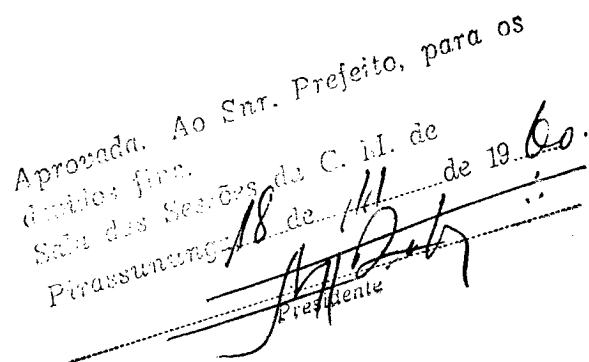 Aprovada. Ao Snr. Prefeito, para os
devidos fins.
Sala das Sessões da C. M. de
Pirassununga 18 de de 1960.
Presidente